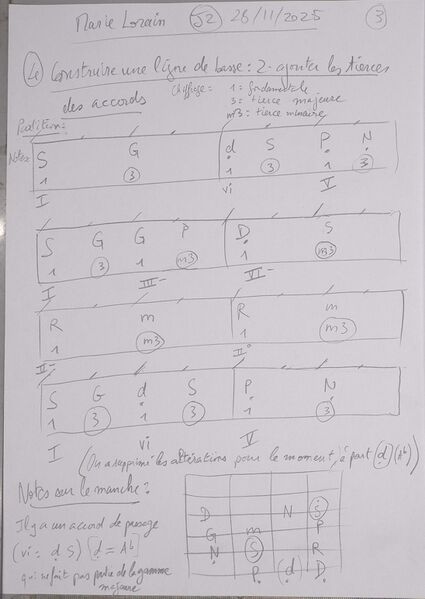 Marie Lorain S2 28/11/2025 3
4) Construire une ligne de basse : 2 - ajouter les tierces
des accords
Chiffrage : 1 = fondamentale
3 = tierce majeure
m3 = tierce mineure
Partition :
Notes: S G d S P N
1 3 1 3 1 3
I vi V
S G G P D S
1 3 1 m3 1 m3
I III- VI-
R m R m
1 m3 1 m3
II- II°
S G d S P N
1 3 1 3 1 3
I vi V
(On a supprimé les altérations pour le moment, à part d (Ab))
Notes sur le manche :
Il y a un accord de passage
(vi : d S) [d = Ab]
qui ne fait pas partie de la gamme
majeure
D N S
G m P
N S R
P (d) D